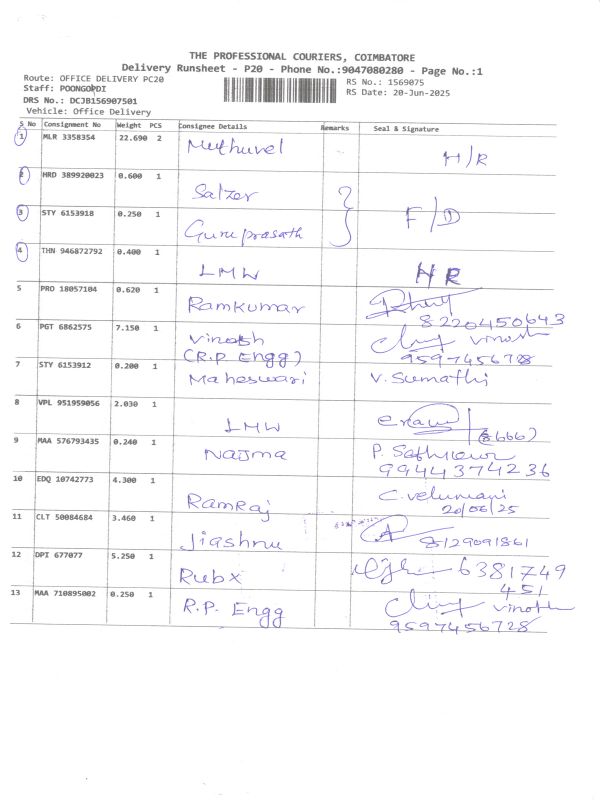 THE PROFESSIONAL COURIERS, COIMBATORE
Delivery Runsheet - P20 - Phone No.:9047080280 - Page No.:1
Route: OFFICE DELIVERY PC20
RS No.: 1569075
Staff: POONGODI
RS Date: 20-Jun-2025
DRS No.: DCJB156907501
Vehicle: Office Delivery
S No Consignment No Weight PCS Consignee Details Remarks Seal & Signature
1 MLR 3358354 22.690 2 Muthuvel H/R
2 HRD 389920023 0.600 1 Salzer
3 STY 6153918 0.250 1 Guruprasath F/D
4 THN 946872792 0.400 1 LMW HR
5 PRO 18057104 0.620 1 Ramkumar
8220450643
6 PGT 6862575 7.150 1 Vinoth vinoth
(R.P Engg) 9597456728
7 STY 6153912 0.200 1 Maheswari V. Sumathi
8 VPL 951959056 2.030 1 LMW
9 MAA 576793435 0.240 1 Najma P.
9944374236
10 EDQ 10742773 4.300 1 Ramraj C. Velumani
20/06/25
11 CLT 50084684 3.460 1 Jiashnu 8129091861
12 DPI 677077 5.250 1 Rubx 6381749
451
13 MAA 710895002 0.250 1 R.P. Engg vinoth
9597456728